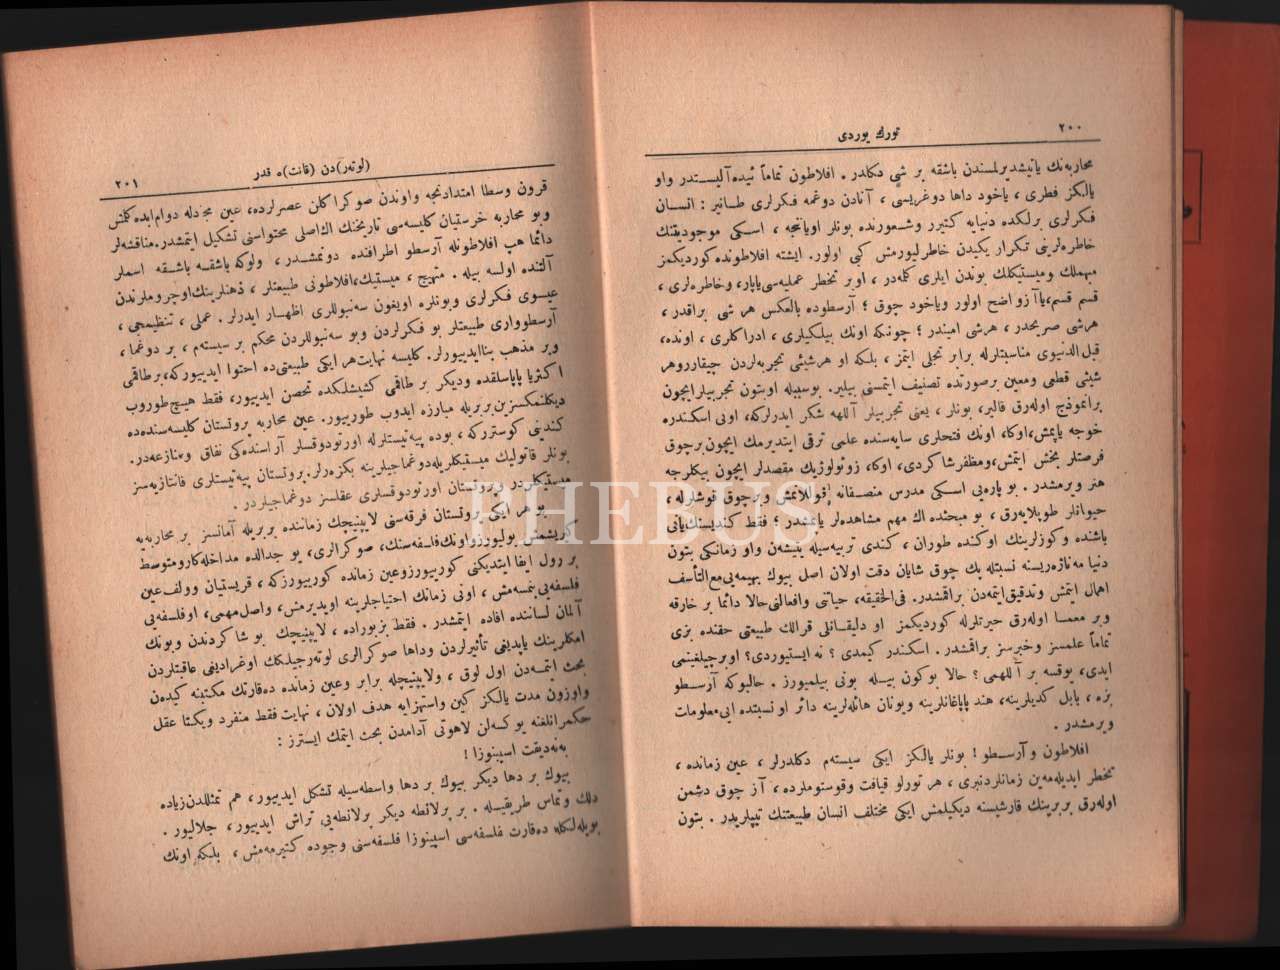 ٢٠٠
تورك يوردى
محاربه‌نك ياتيشديرلمسندن باشقه بر شى دكلدر . افلاطون تماماً ئيده‌آليستدر واو
يالكز فطرى ، ياخود داها دوغريسى ، آنادن دوغمه فكرلرى طانير : انسان
فكرلرى برلكده دنيايه كتيرر وشعورنده بونلر اويانجه ، اسكى موجوديتنك
خاطره‌لرينى تكرار يكيدن خاطرليورمش كبى اولور. ايشته افلاطونده كورديكمز
مبهملك وميستيكلك بوندن ايلرى كلمه‌در ، اوبر تخطر عمليه‌سى ياپار، وخاطره‌لرى ،
قسم قسم، ياآز واضح اولور وياخود چوق ؛ آرسطوده بالعكس هر شى براقدر ،
هرشى صريحدر ، هرشى اميندر ؛ چونكه اونك بيلكيلرى ، ادراكلرى ، اونده،
قبل الدنيوى مناسبتلرله برابر تجلى ايتمز ، بلكه او هرشيئى تجربه‌لردن چيقارروهر
شيئى قطعى ومعين برصورتده تصنيف ايتمسنى بيلير. بوسببله اوستون تجربيلرايچون
برانموذج اوله‌رق قالير، بونلر ، يعنى تجربيلر آللهه شكر ايدرلركه، اونى اسكندره
خوجه ياپمش، اوكا، اونك فتحلرى سايه‌سنده علمى ترقى ايتديرمك ايچون برچوق
فرصتلر بخش ايتمش، ومظفر شاكردى، اوكا، زوئولوژيك مقصدلر ايچون بيكلرجه
هنر ويرمشدر . بو پاره‌يى اسكى مدرس منصفانه قوللانمش وبرچوق قوشلرله ،
حيوانلر طوپلايه‌رق ، بو مبحثده اك مهم مشاهده‌لر ياپمشدر ؛ فقط كنديسنك‌يانى
باشنده وكوزلرينك اوكنده طوران ، كندى تربيه‌سيله يتيشه‌ن واو زمانكى بتون
دنيا مه‌ناژه‌ريسنه نسبتله پك چوق شايان دقت اولان اصل بيوك بهيمه‌يى مع‌التأسف
اهمال ايتمش وتدقيق ايتمه‌دن براقمشدر. فى‌الحقيقه، حياتنى وافعالنى حالا دائما بر خارقه
وبر معما اوله‌رق حيرتلرله كورديكمز او دليقانلى قرالك طبيعتى حقنده بزى
تماماً علمسز وخبرسز براقمشدر . اسكندر كيمدى ؟ نه ايستيوردى؟ اوبرچيلغينمى
ايدى، يوقسه بر آللهمى؟ حالا بوكون بيله بونى بيلميورز . حالبوكه آرسطو
بزه ، بابل كديلرينه، هند پاپاغانلرينه ويونان هائله‌لرينه دائر او نسبتده ايى معلومات
ويرمشدر .
افلاطون و آرسطو! بونلر يالكز ايكى سيستەم دكلدرلر ، عين زمانده ،
تخطر ايديله‌مه‌ين زمانلردنبرى ، هر تورلو قيافت وقوستوملرده ، آز چوق دشمن
اوله‌رق بربرينك قارشيسنه ديكيلمش ايكى مختلف انسان طبيعتنك تيپلريدر . بتون
(لوته‌ر)دن (قانت)ه قدر
٢٠١
قرون وسطا امتدادنجه واوندن صوكرا كلن عصرلرده، عين مجادله دوام ايده‌كلمش
وبو محاربه خرستيان كليسه‌سى تاريخنك اك‌اصلى محتواسنى تشكيل ايتمشدر.مناقشه‌لر
دائما هپ افلاطونله آرسطو اطرافنده دونمشدر ، ولوكه باشقه باشقه اسملر
آلتنده اولسه بيله . متهيج ، ميستيك، افلاطونى طبيعتلر ، ذهنلرينك اوچروملرندن
عيسوى فكرلرى وبونلره اويغون سه‌نبوللرى اظهار ايدرلر. عملى ، تنظيمجى ،
آرسطووارى طبيعتلر بو فكرلردن وبو سه‌نبوللردن محكم بر سيستەم ، بر دوغما ،
وبر مذهب بناايدييورلر. كليسه نهايت هر ايكى طبيعتى ده احتوا ايدييوركه، برطاقمى
اكثريا پاپاسلقده وديكر بر طاقمى كشيشلكده تحصن ايدييور، فقط هيچ طوروب
ديكلنمكسزين بربريله مبارزه ايدوب طورييور. عين محاربه پروتستان كليسه‌سنده‌ده
كندينى كوستررکه ، بوده پيه‌تيستلرله اورتودوقسلر آراسنده‌كى نفاق ومنازعه‌در.
بونلر قاتوليك ميستيكلريله دوغماجيلرينه بكزه‌رلر. پروتستان پيه‌تيستلرى فانتازيه‌سز
مستيكلردر وپروتستان اورتودوقسلرى عقلسز دوغماجيلردر .
بو هر ايكى پروتستان فرقه‌سنى لايبنيچك زماننده بربريله آمانسز بر محاربه‌يه
كيريشمش بوليورز واونك‌فلسفه‌سنك، صوكرالرى، بو جدالده مداخله‌كارومتوسط
بر رول ايفا ايتديكنى كورييورز وعين زمانده كورييورزكه ، قريستيان وولف عين
فلسفه‌يى بنمسه‌مش ، اونى زمانك احتياجلرينه اويديرمش، واصل مهمى، اوفلسفه‌يى
آلمان لساننده افاده ايتمشدر . فقط بزبوراده ، لايبنيچك بو شاكردندن وبونك
امكلرينك ياپديغى تأثيرلردن وداها صوكرالرى لوته‌رجيلكك اوغراديغى عاقبتلردن
بحث ايتمه‌دن اول لوق ، ولايبنيچله برابر وعين زمانده ده‌قارتك مكتبنه كيده‌ن
واوزون مدت يالكز كين واستهزايه هدف اولان ، نهايت فقط منفرد ويكتا عقل
حكمرانلغنه يوكسه‌لن لاهوتى آدامدن بحث ايتمك ايسترز :
به‌نه‌ديقت اسپينوزا !
بيوك بر دها ديكر بيوك بر دها واسطه‌سيله تشكل ايدييور ، هم تمثللدن‌زياده
دلك وتماس طريقيسله . بر برلانطه ديكر برلانطه‌يى تراش ايدييور ، جلاليور .
بويله‌لكله ده‌قارت فلسفه‌سى اسپينوزا فلسفه‌سنى وجوده كتيرمه‌مش ، بلكه اونك
PHEBUS